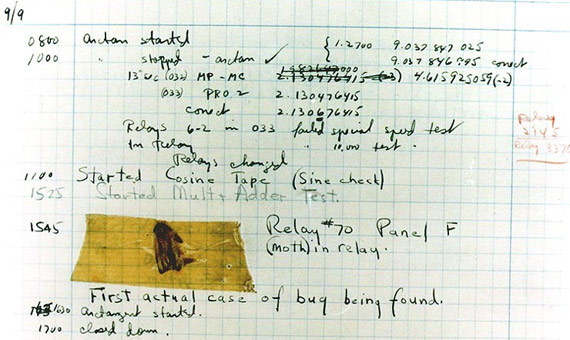 9/9
0800 antan started { 1.2700 9.037 847 025
1000 " stopped - antan ✓ 9.037 846 995 conect
13"uc (032) MP - MC 2.130476415 (-3) 4.615925059(-2)
(033) PRO 2 2.130476415
conect 2.130676415
Relays 6-2 in 033 failed special speed test
In Relay " 10,000 test .
Relays changed
1100 Started Cosine Tape (Sine check)
1525 Started Mult + Adder Test.
1545 Relay #70 Panel F
(moth) in relay.
First actual case of bug being found.
1630 antangent started.
1700 closed down.
Relay
2145
Relay 3370